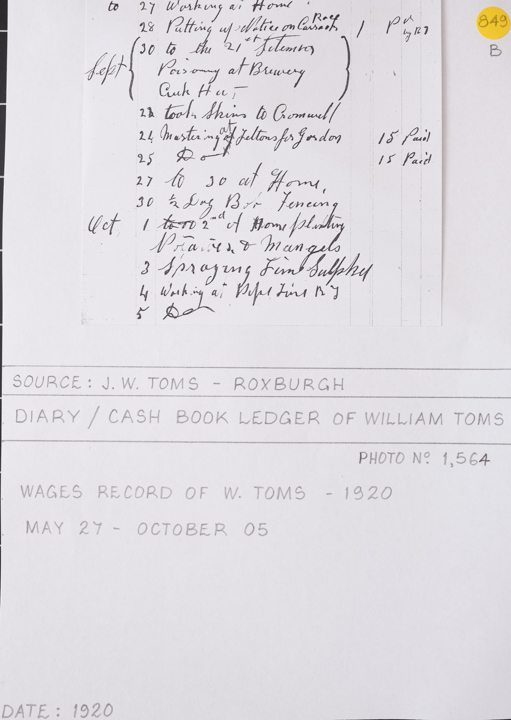 to 27 Working at Home
28 Putting up Notice on Race 1 Pd
849
B
Sept 30 to the 21st
Poisoning at Brewery
Creek Hut
22 took Skins to Cromwell
24 Mustering at Feltons for Gordon 15 Paid
25 Do 15 Paid
27 to 30 at Home,
30 ½ Day Fencing
Oct 1 2nd at Home planting
Potatoes & Mangels
3 Spraying Lime Sulpher
4 Working at Pipe Line
5 Do
SOURCE: J. W. TOMS - ROXBURGH
DIARY / CASH BOOK LEDGER OF WILLIAM TOMS
PHOTO Nº 1,564
WAGES RECORD OF W. TOMS - 1920
MAY 27 - OCTOBER 05
DATE: 1920